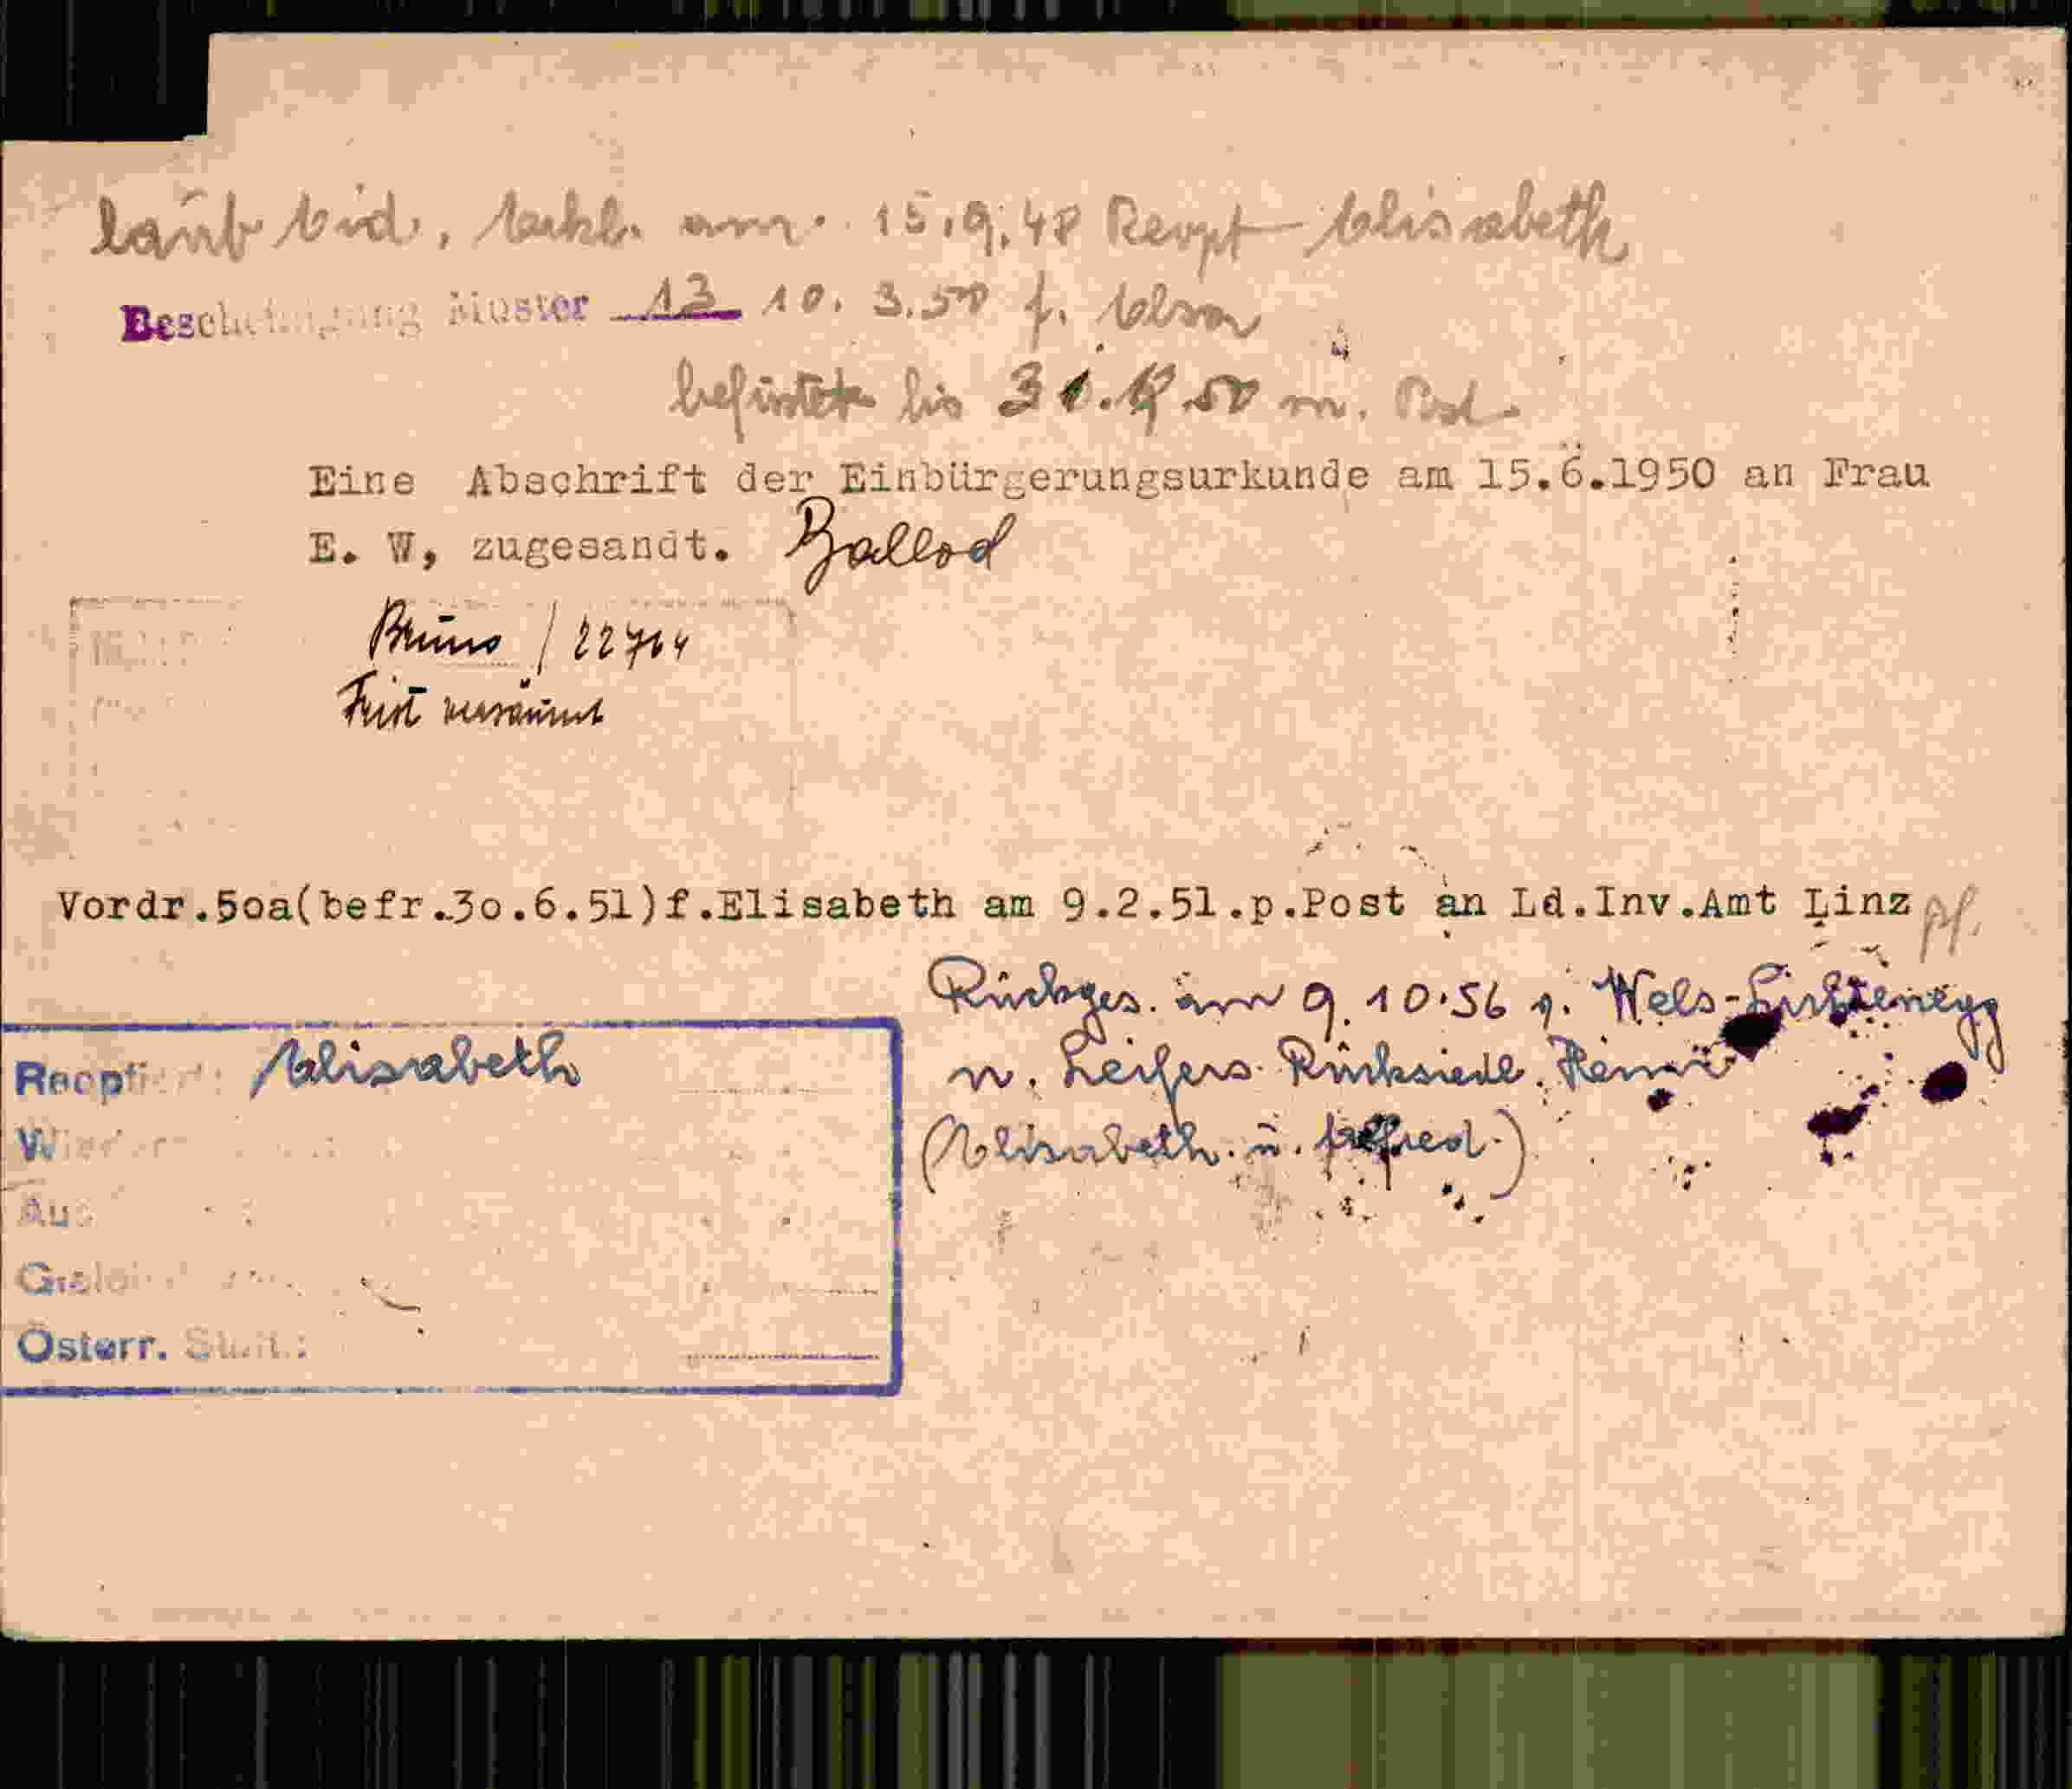 laut Eid. Erkl. am. 15.9.48 Reopt Elisabeth
Bescheinigung Muster 13 10. 3.50 f. Elsa
befristet bis 31. 50 m.
Eine Abschrift der Einbürgerungsurkunde am 15.6.1950 an Frau
E. W, zugesandt. Ballod
Bruno / 22764
Frist versäumt
Vordr.5oa(befr.3o.6.51)f.Elisabeth am 9.2.51.p.Post an Ld.Inv.Amt Linz pf.
Rückges. am 9.10.56 v. Wels-Lichtenegg
n. Leifers Rücksiedl. Heim
(Elisabeth u. Alfred)
Reoptiert: Elisabeth
Österr. Staat.: